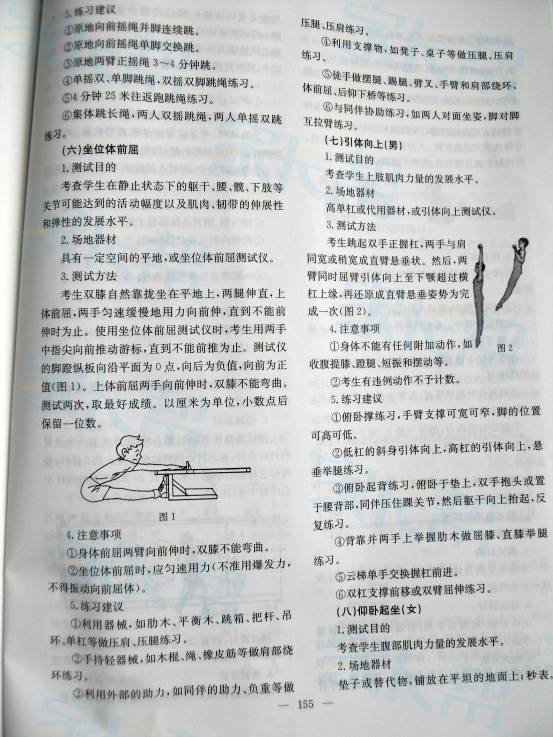 5.练习建议
①原地向前摇绳并脚连续跳。
②原地向前摇绳单脚交换跳。
③原地两臂正摇绳3～4分钟跳。
④单摇双、单脚跳绳，双摇双脚跳绳练习。
⑤4分钟25米往返跑跳绳练习。
⑥集体跳长绳，两人双摇跳绳，两人单摇双跳
练习。
(六)坐位体前屈
1.测试目的
考查学生在静止状态下的躯干、腰、髋、下肢等
关节可能达到的活动幅度以及肌肉、韧带的伸展性
和弹性的发展水平。
2.场地器材
具有一定空间的平地，或坐位体前屈测试仪。
3.测试方法
考生双膝自然靠拢坐在平地上，两腿伸直，上
体前屈，两手匀速缓慢地用力向前伸，直到不能前
伸时为止。使用坐位体前屈测试仪时，考生用两手
中指尖向前推动游标，直到不能前推为止。测试仪
的脚蹬纵板向沿平面为0点，向后为负值，向前为正
值(图1)。上体前屈两手向前伸时，双膝不能弯曲。
测试两次，取最好成绩。以厘米为单位，小数点后
保留一位数。
图1
4.注意事项
①身体前屈两臂向前伸时，双膝不能弯曲。
②坐位体前屈时，应匀速用力(不准用爆发力，
不得振动向前屈体)。
5.练习建议
①利用器械，如肋木、平衡木、跳箱、把杆、吊
环、单杠等做压肩、压腿练习。
②手持轻器械，如木棍、绳、橡皮筋等做肩部绕
环练习。
③利用外部的助力，如同伴的助力、负重等做
压腿、压肩练习。
④利用支撑物，如凳子、桌子等做压腿、压肩
练习。
⑤徒手做摆腿、踢腿、劈叉、手臂和肩部绕环、
体前屈、后仰下桥等练习。
⑥与同伴协助练习，如两人对面坐姿，脚对脚
互拉臂练习。
(七)引体向上(男)
1.测试目的
考查学生上肢肌肉力量的发展水平。
2.场地器材
高单杠或代用器材，或引体向上测试仪。
3.测试方法
考生跳起双手正握杠，两手与肩
同宽或稍宽成直臂悬垂状。然后，两
臂同时屈臂引体向上至下颚超过横
杠上缘，再还原成直臂悬垂姿势为完
成一次(图2)。
4.注意事项
①身体不能有任何附加动作，如
收腹提膝、蹬腿、短振和摆动等。
图2
②考生有违例动作不予计数。
5.练习建议
①俯卧撑练习，手臂支撑可宽可窄，脚的位置
可高可低。
②低杠的斜身引体向上，高杠的引体向上，悬
垂举腿练习。
③俯卧起背练习，俯卧于垫上，双手抱头或置
于腰背部，同伴压住踝关节，然后躯干向上抬起，反
复练习。
④背靠并两手上举握肋木做屈膝、直膝举腿
练习。
⑤云梯单手交换握杠前进。
⑥双杠支撑前移或双臂屈伸练习。
(八)仰卧起坐(女)
1.测试目的
考查学生腹部肌肉力量的发展水平。
2.场地器材
垫子或替代物，铺放在平坦的地面上；秒表。
— 155 —